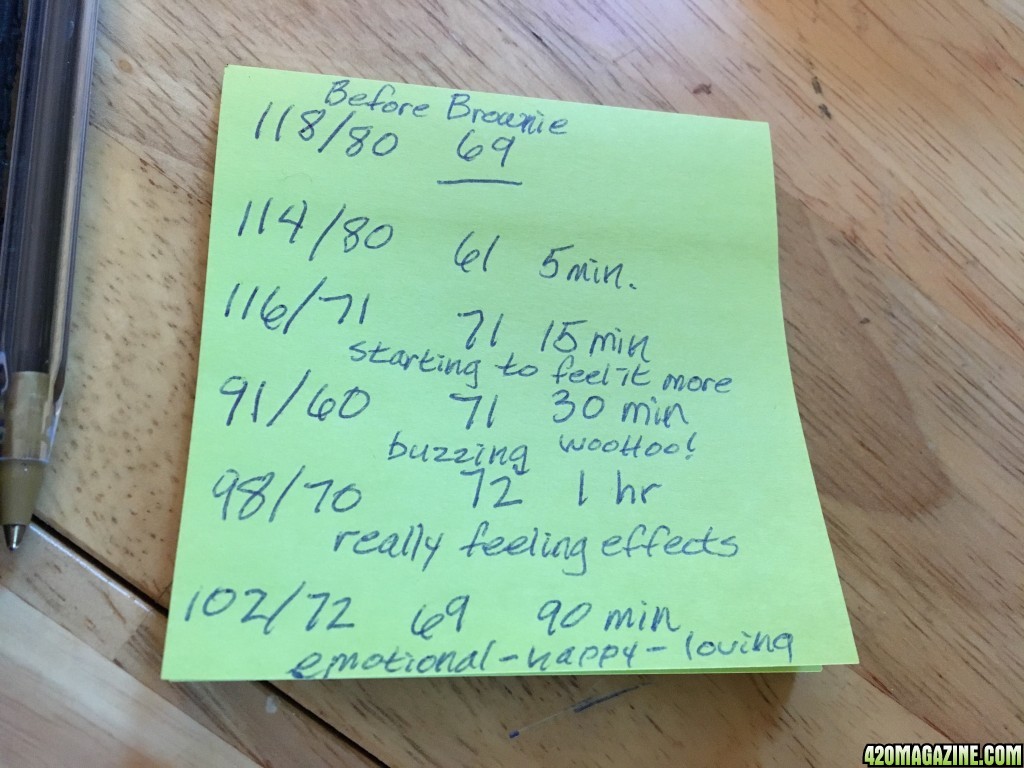 Before Brownie
118/80 69
114/80 61 5 min.
116/71 71 15 min
starting to feel it more
91/60 71 30 min
buzzing wooHoo!
98/70 72 1 hr
really feeling effects
102/72 69 90 min
emotional - happy - loving
420MAGAZINE.COM